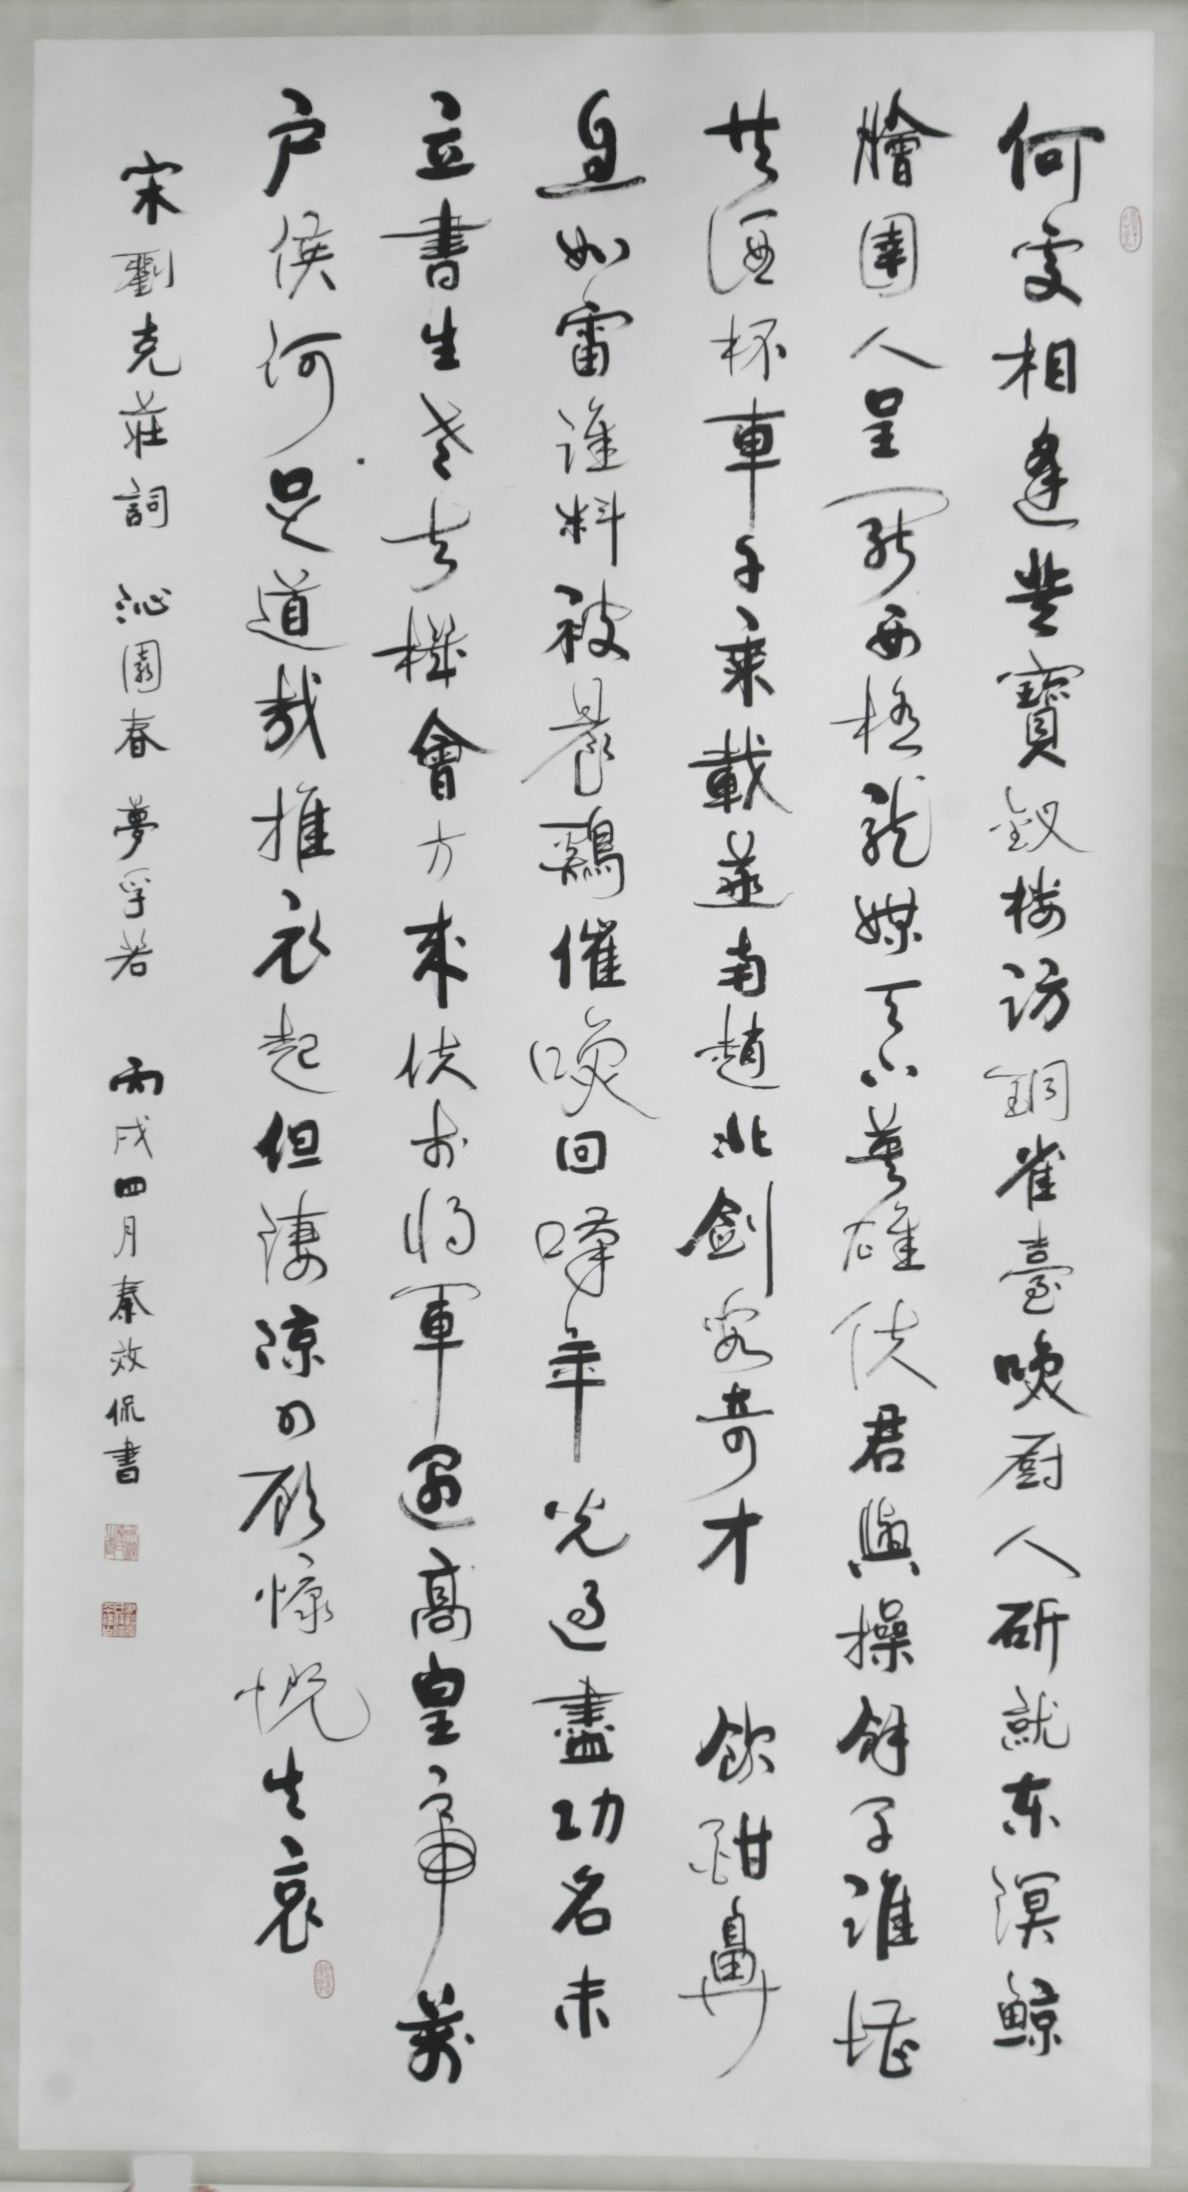 何處相逢登寶釵樓訪銅雀臺喚厨人斫就东溟鯨
膾圉人呈罷西極龍媒天下英雄使君與操餘子誰堪
共酒杯車千乘載燕南趙北劍客奇才 飲酣鼻
息如雷誰料被晨鷄催喚回嘆年光過盡功名未
立書生老去機會方來使李將軍遇高皇帝萬
户侯何足道哉推衣起但淒凉四顧慷慨生哀
宋劉克莊詞 沁園春 夢孚若 丙戌四月秦效侃書